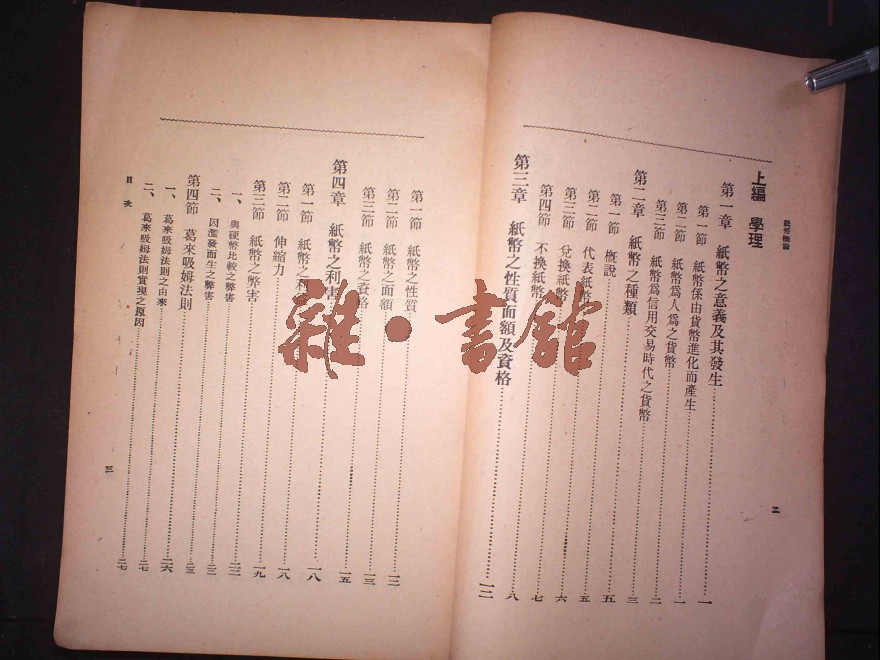 紙幣概論
二
上編 學理
第一章 紙幣之意義及其發生 一
第一節 紙幣係由貨幣進化而產生 一
第二節 紙幣爲人爲之貨幣 二
第三節 紙幣爲信用交易時代之貨幣 三
第二章 紙幣之種類 五
第一節 概說 五
第二節 代表紙幣 六
第三節 兌換紙幣 七
第四節 不換紙幣 八
第三章 紙幣之性質面額及資格 一二
第一節 紙幣之性質 一二
第二節 紙幣之面額 一三
第三節 紙幣之資格 一五
第四章 紙幣之利害 一八
第一節 紙幣之利 一八
第二節 伸縮力 一九
第三節 紙幣之弊害 二二
一、與硬幣比較之弊害 二二
二、因濫發而生之弊害 二三
第四節 葛來吸姆法則 二六
一、葛來吸姆法則之由來 二七
二、葛來吸姆法則實現之原因 二七
目次
三
雜·書館